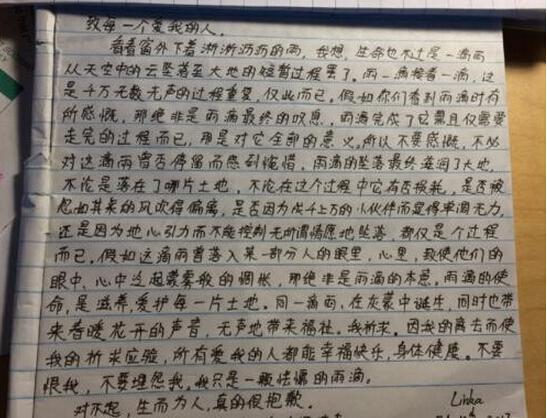 致每一个爱我的人,
看看窗外下着淅淅沥沥的雨,我想,生命也不过是一滴雨
从天空中的云坠落至大地的短暂过程罢了。雨一滴接着一滴,这
是千万无数无声的过程重复,仅此而已。假如你们看到雨滴时有
所感慨,那绝非是雨滴最终的叹息,雨滴完成了它需且仅需要
走完的过程而已,那是对它全部的意义。所以不要感慨,不必
对这滴雨曾否停留而感到惋惜。雨滴的坠落最终滋润了大地,
不论是落在了哪片土地,不论在这个过程中它有否损耗,是否被
忽如其来的风吹得偏离,是否因为成千上万的小伙伴而显得单调无力,
还是因为地心引力而不能控制无所谓情愿地坠落,都仅是个过程
而已。假如这滴雨曾落入某一部分人的眼里,心里,致使他们的
眼中、心中泛起蒙雾般的惆怅,那绝非是雨滴的本意。雨滴的使
命,是滋养,爱护每一片土地。同一滴雨,在灰蒙中诞生,同时也带
来春暖花开的声音,无声地带来福祉。我祈求,因我的离去而使
我的祈求应验,所有爱我的人都能幸福快乐,身体健康。不要
恨我,不要埋怨我,我只是一颗怯懦的雨滴。
对不起,生而为人,真的很抱歉。
Linka